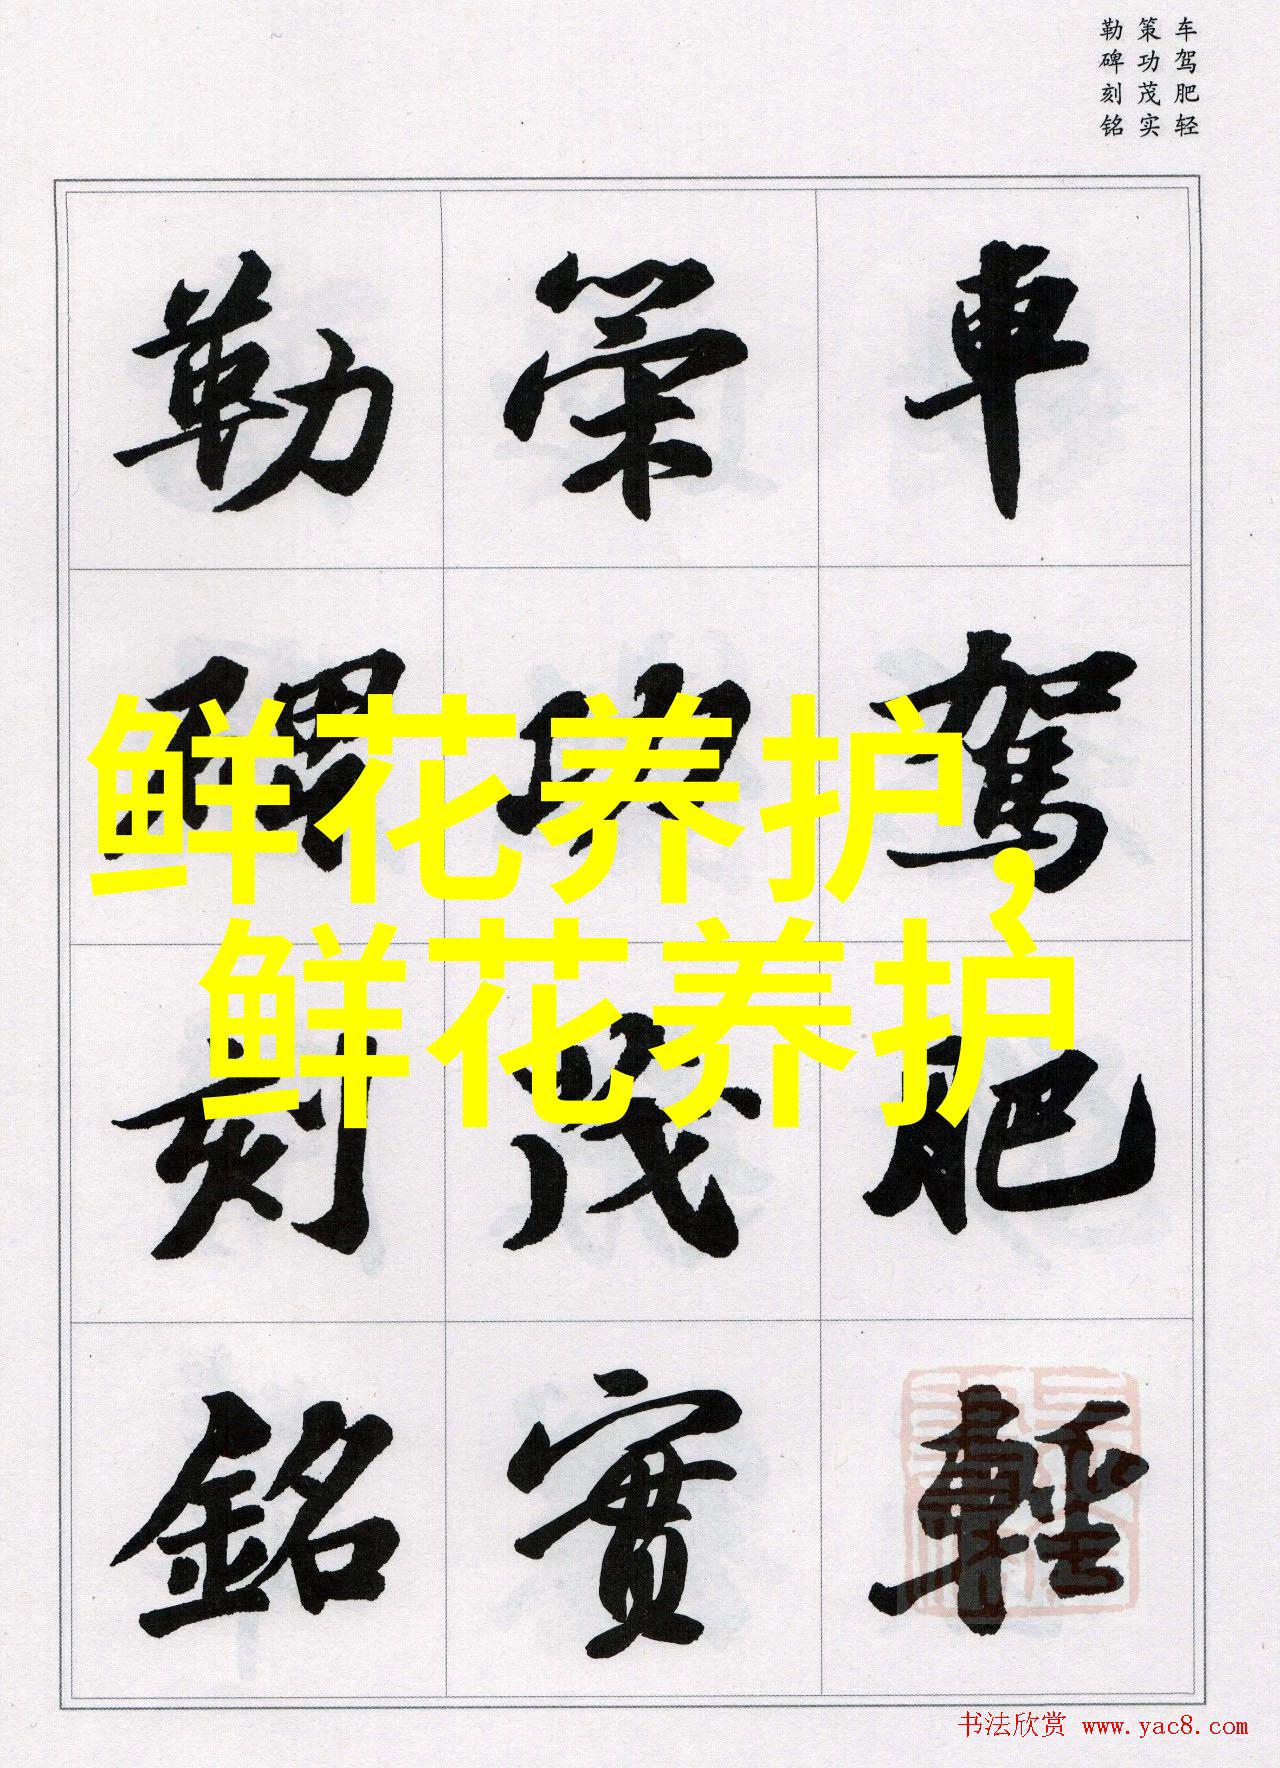 车驾肥轻
策功茂实
勒碑刻铭
車駕肥輕
策功茂實
勒碑刻銘
鲜花养护，
鲜花养护
书法欣赏 www.yac8.com